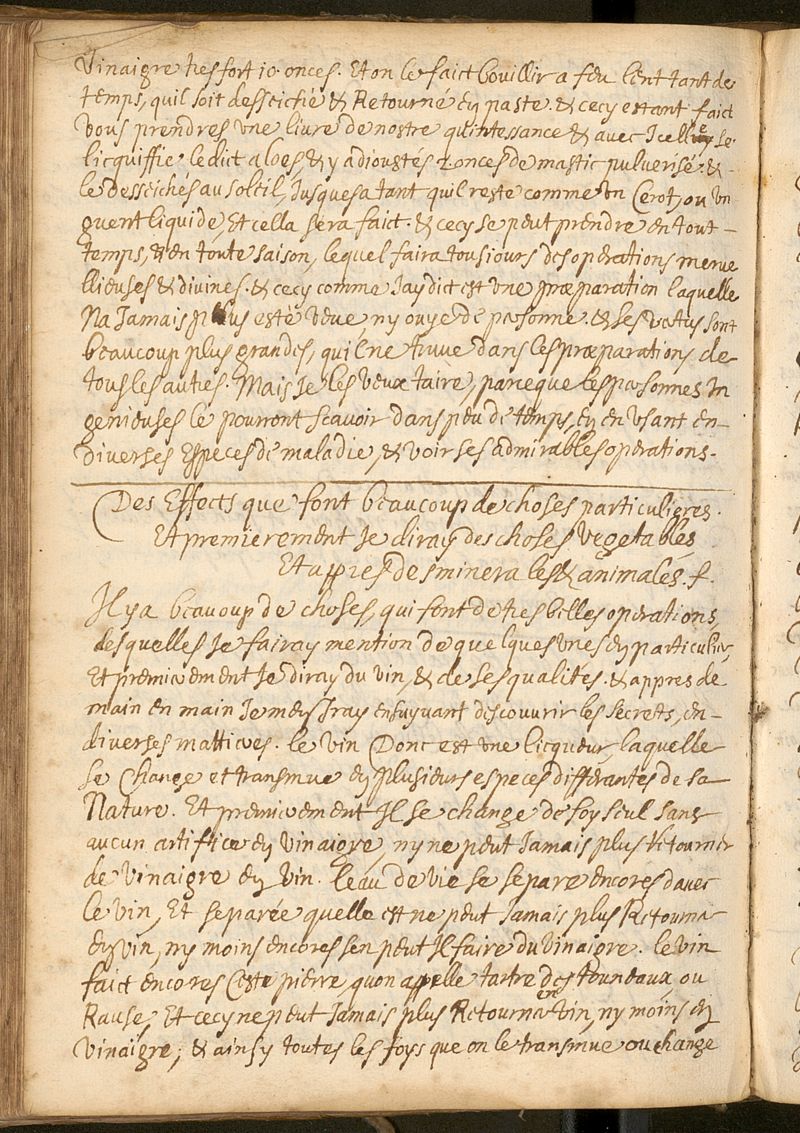 Vinaigre tresfort 10. onces. Et on le faict bouillir a feu lent tant de
temps, quil soit desseiché & Retourné en paste. & cecy estant faict
Vous prendres vne liure de nostre quintessance & auec Icelle se
licquiffie le dict aloes, & y adioustés 2. onces de mastic puluerisé. &
le desseichés au soleil, Jusques a tant quil reste comme vn Cerot, ou vn
guent liquide, Et cella sera faict. & cecy se peut prendre en tout
temps, & en toute saison, lequel faira tousiours des operations merue
llieuses & diuines. & cecy comme Jay dict est vne præparation laquelle
Na Jamais plus esté veue ny ouye de personne. & ses vertus sont
beaucoup plus grandes, quil ne truue dans les præparations de
tous les autres. Mais Je les veux taire, parceque les personnes In
genieuses le pourront scauoir dans peu de temps, en en vsant en
diuerses Especes de maladie, & voir ses admirables operations.
Des Effects que font beaucoup de choses particulieres.
Et premierement Je diray des choses vegetables
Et appres des minerales & animales.
Il y a beaucoup de choses, qui font de tres belles operations,
desquelles Je fairay mention de quelques vnes en particulier,
Et premierement Je diray du vin, & de ses qualités. & appres de
main en main Je men Iray ensuyuant descouurir les secrets, en
diuerses mattieres. le vin Donc est vne licqueur, laquelle
se Change et transmue en plusieurs especes differantes de sa
Nature. Et premierement Il se change de soy seul sans
aucun artiffice en vinaigre, ny ne peut Jamais plus Retourner
de vinaigre en vin. leau de vie se separe encores dauec
le vin, Et separée quelle est ne peut Jamais plus Retourner
en vin, ny moins encores sen peut Il faire du vinaigre. le vin
faict encores ceste pierre quon appelle tartre des touneaux ou
Rause, Et cecy ne peut Jamais plus Retourner en vin, ny moins en
vinaigre; & ainsy toutes les foys que on le transmue ou change